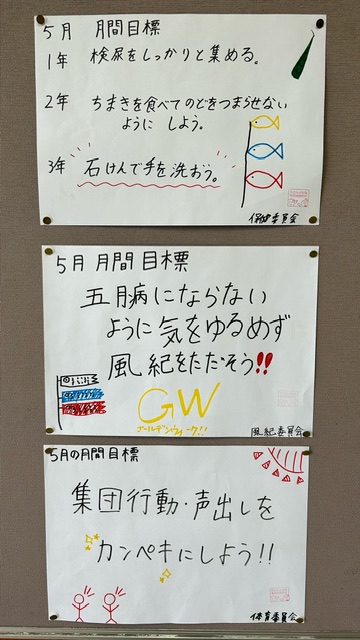 5月 月間目標
1年 検尿をしっかりと集める。
2年 ちまきを食べてのどをつまらせない
ように しよう。
3年 石けんで手を洗おう。
保健委員会
5月 月間目標
五月病にならない
ように気をゆるめず
風紀をただそう!!
GW
ゴールデンウィーク!!
風紀委員会
5月の月間目標
集団行動・声出しを
カンペキにしよう!!
体育委員会